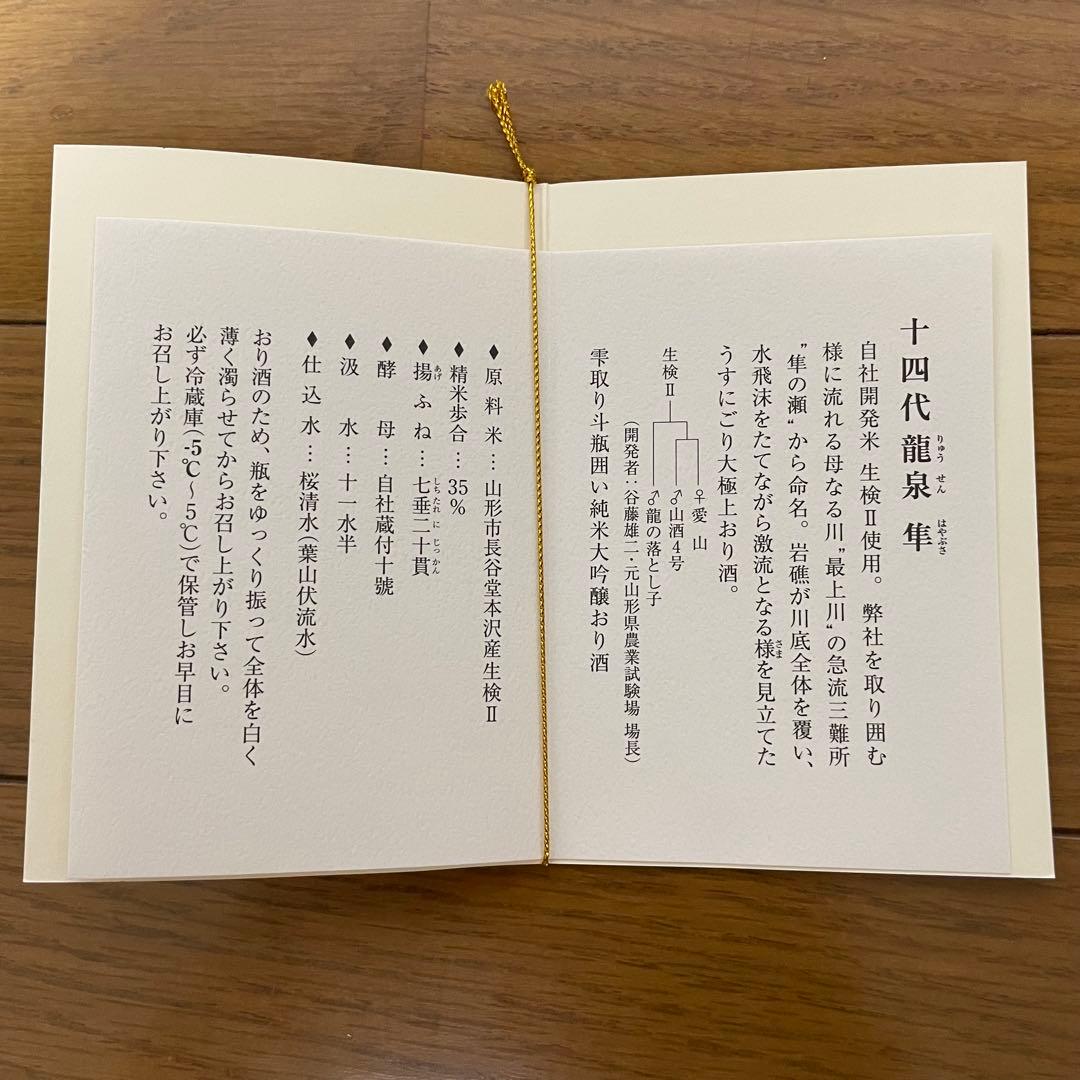 十四代 龍泉 隼
りゅう せん はやぶさ
自社開発米 生検Ⅱ使用。 弊社を取り囲む
様に流れる母なる川”最上川“の急流三難所
”隼の瀬“から命名。岩礁が川底全体を覆い、
水飛沫をたてながら激流となる様を見立てた
さま
うすにごり大極上おり酒。
生検Ⅱ
♀愛 山
♂山酒4号
♂龍の落とし子
(開発者：谷藤雄二・元山形県農業試験場 場長)
雫取り斗瓶囲い純米大吟醸おり酒
♦原料米…山形市長谷堂本沢産生検Ⅱ
♦精米歩合…35%
♦揚ふね…七垂二十貫
あげ しちたれ に じっかん
♦酵母…自社蔵付十號
♦汲水…十一水半
♦仕込水…桜清水(葉山伏流水)
おり酒のため、瓶をゆっくり振って全体を白く
薄く濁らせてからお召し上がり下さい。
必ず冷蔵庫(-5℃～5℃)で保管しお早目に
お召し上がり下さい。